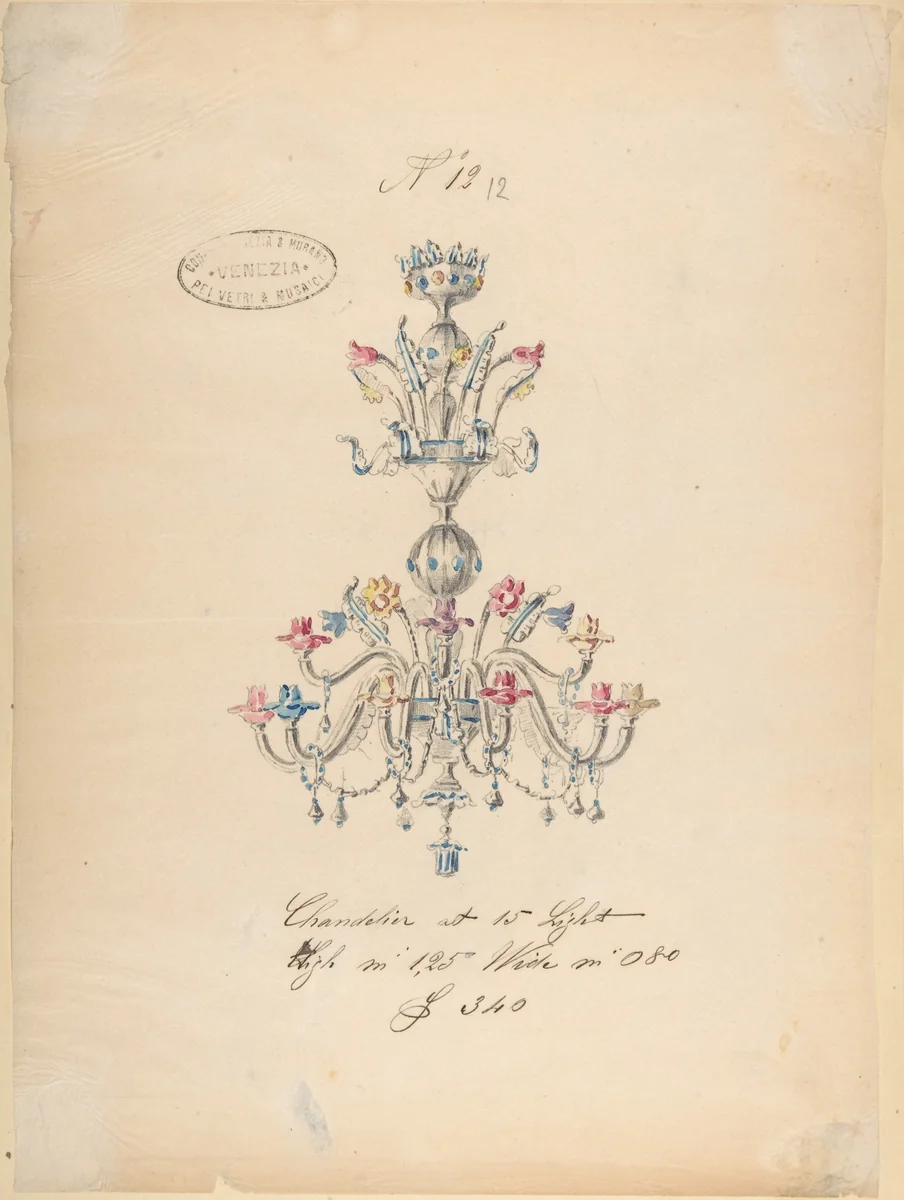 Nº 12 12
VENEZIA & MURANO
VENEZIA
PEI VETRI & MUSAICI
Chandelier at 15 Light
High m 1,25 Wide m 0 80
340